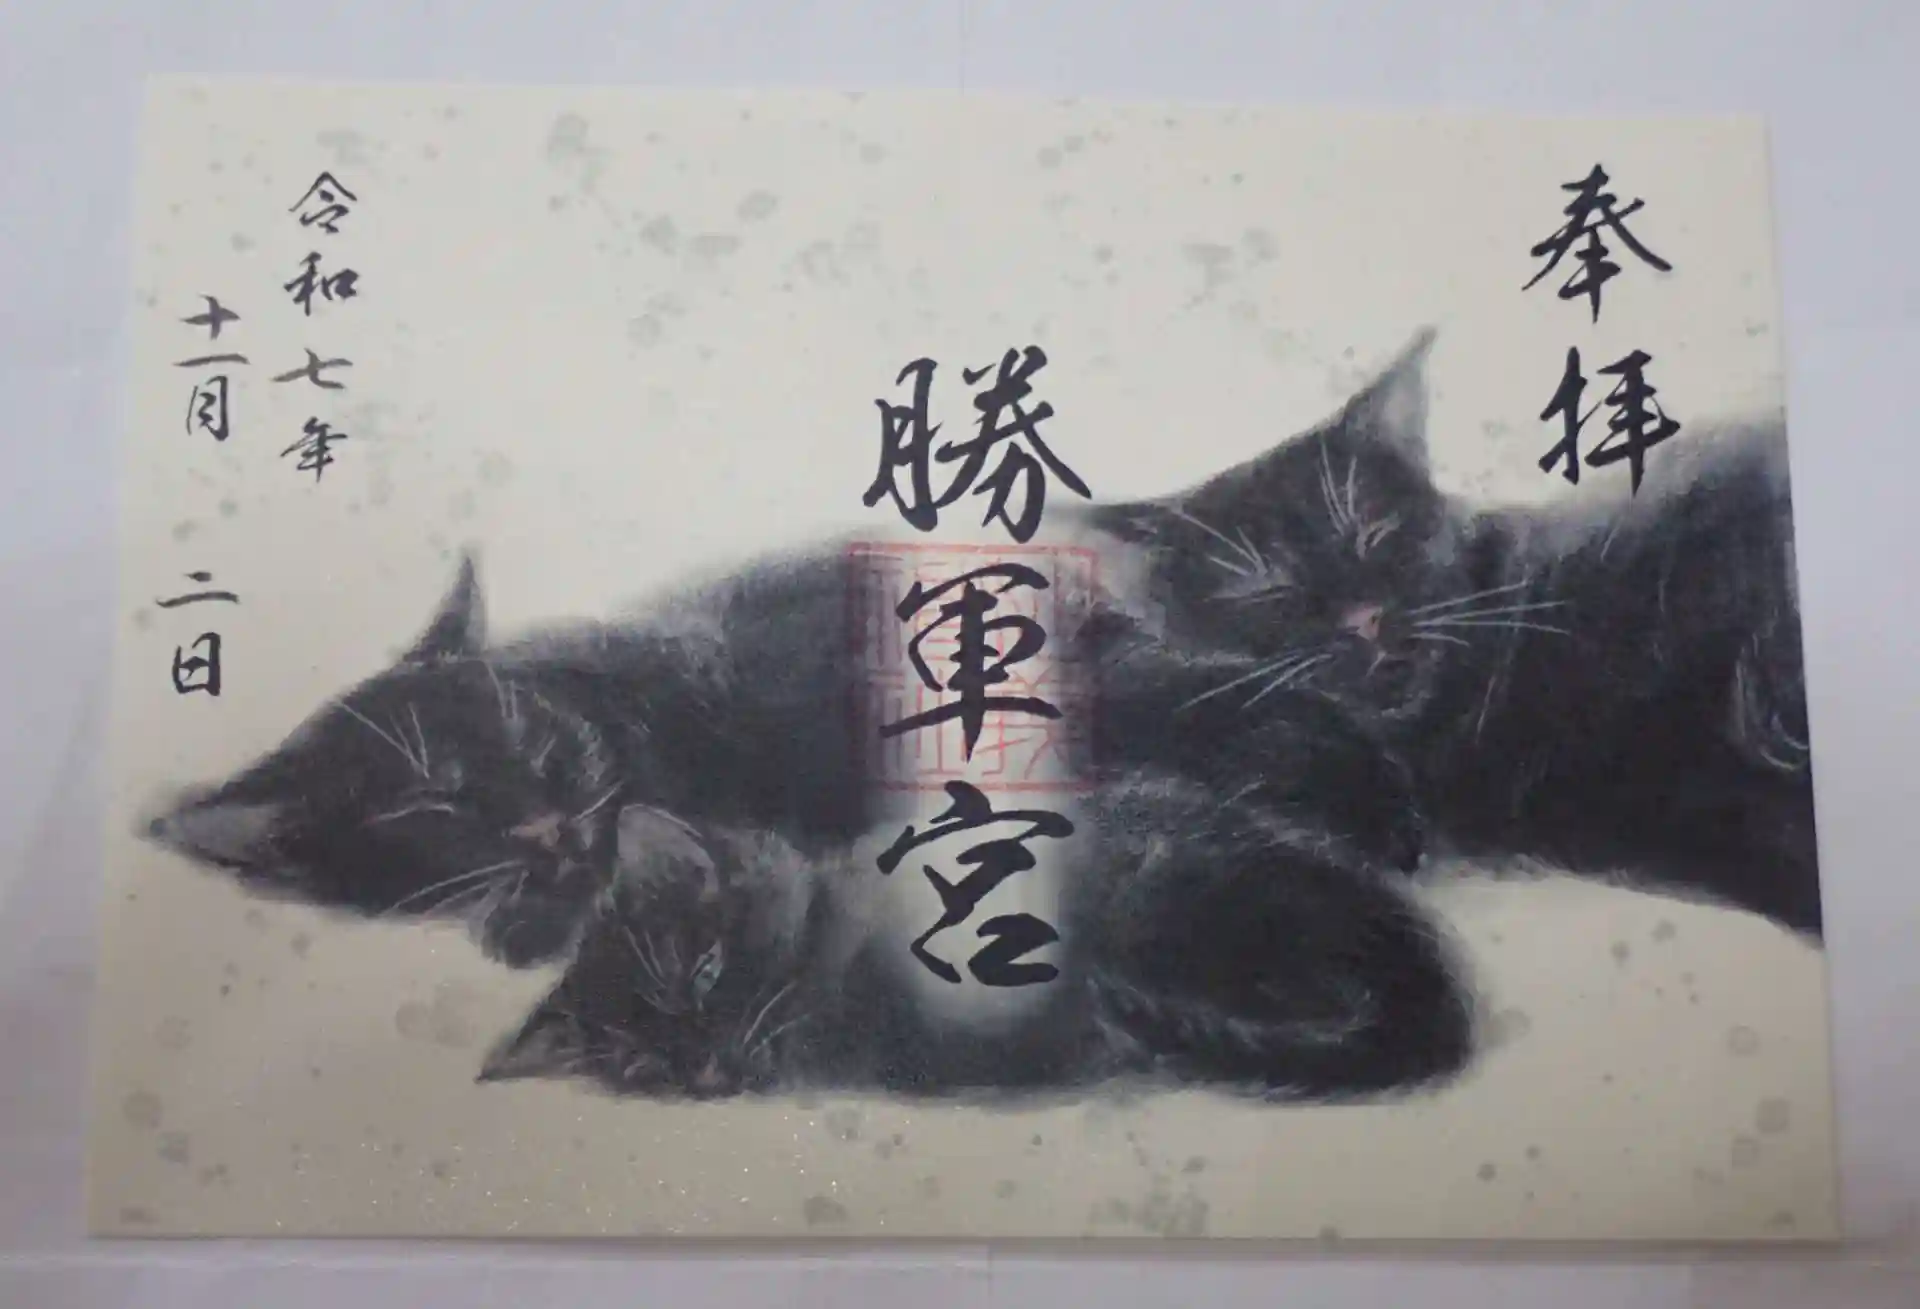 奉拝
勝軍宮
令和七年
十一月 二日